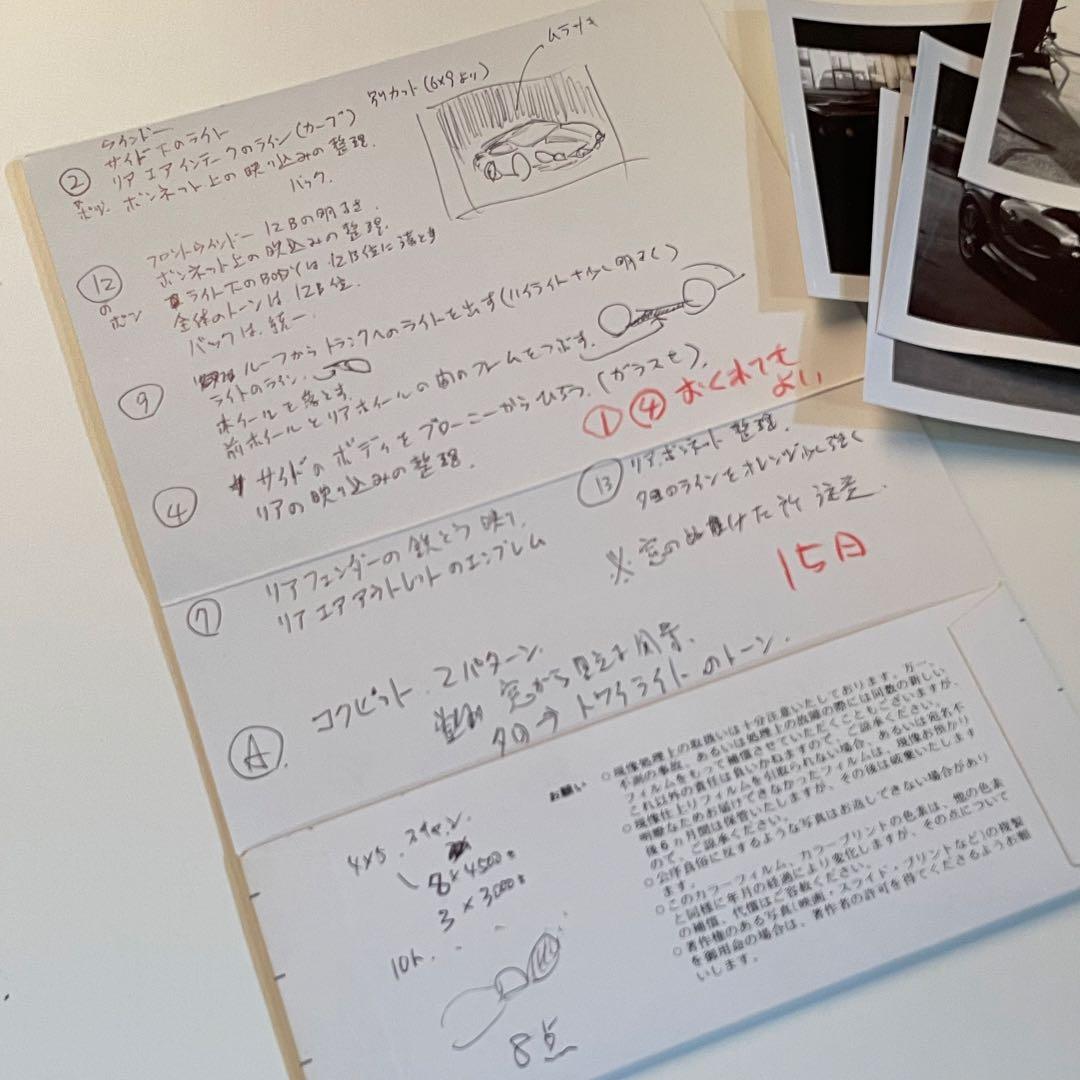 ムラヤキ
別カット(6×9より)
ウインドー
サイド下のライト
② リア エアインテークのライン(カーブ)
ボンネット上の映り込みの整理.
バック.
⑫ フロントウインドー 12Bの明るさ.
のポジ
ボンネット上の映込みの整理.
ライト下のBODYは 12B位に落とす
全体のトーンは 12B位.
バックは統一.
⑨ ルーフからトランクへのライトを出す(ハイライト+少し明るく)
ライトのライン.
ホイールを落とす.
前ホイールとリアホイールの間のフレームをつぶす.
④ サイドのボディをブローニーからひろう.(ガラスも).
リアの映り込みの整理.
① ④ おくれても
よい
⑬ リアボンネット 整理.
のラインをオレンジ少し強く
※窓のぬけた所 注意.
15日
⑦ リアフェンダーの鉄とう映り.
リアエアアウトレットのエンブレム
Ⓐ. コクピット. 2パターン.
窓から見える
夕日→トワイライトのトーン.
4×5. スキャン.
8×4500
3×3000
10ト.
8点
お願い
○現像処理上の取扱いは十分注意いたしております。万一、
不測の事故、あるいは処理上の故障の際には同数の新しい
フィルムをもって補償させていただくこともございますが、
これ以外の責任は負いかねますので、ご諒承ください。
○現像仕上りフィルムを引取られない場合、あるいは宛名不
明瞭なためお届けできなかったフィルムは、現像お預かり
後6ヵ月間は保管いたしますが、その後は破棄いたします
ので、ご諒承ください。
○公序良俗に反するような写真はお返しできない場合があり
ます。
○このカラーフィルム、カラープリントの色素は、他の色素
と同様に年月の経過により変化しますが、その点について
の補償、代償はご容赦ください。
○著作権のある写真(映画・スライド・プリントなど)の複製
を御用命の場合は、著作者の許可を得てくださるようお願
いします。